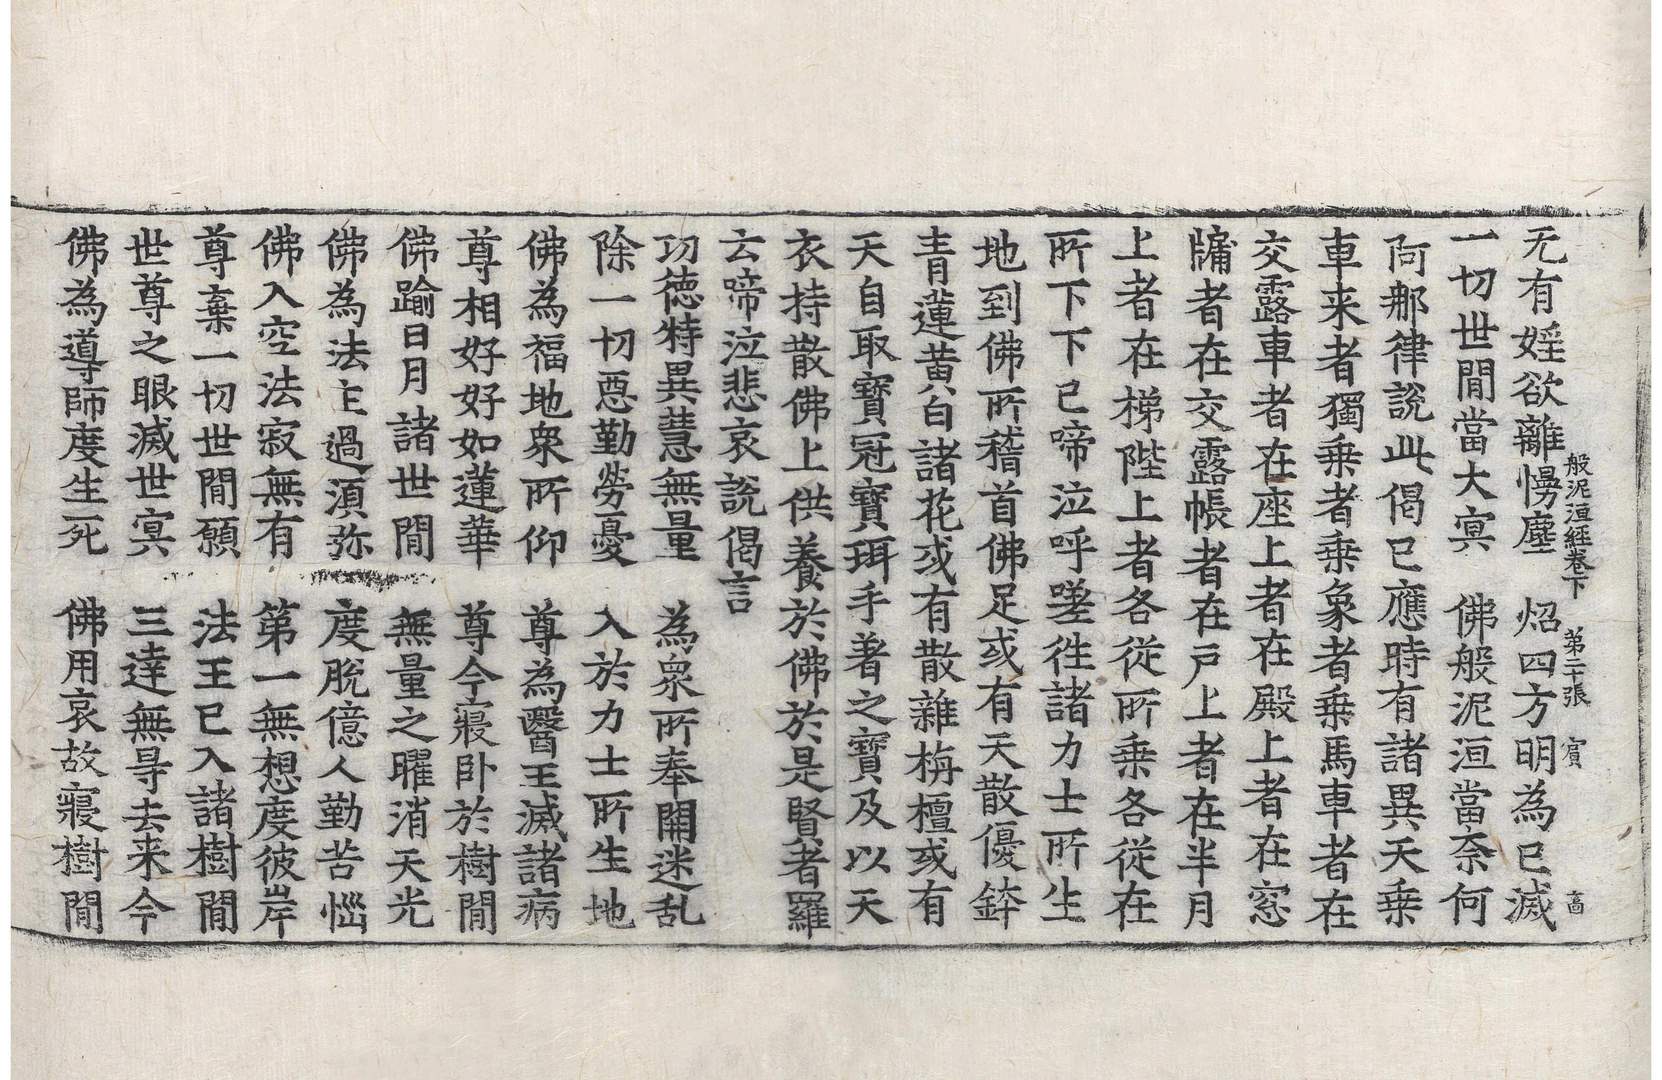 般泥洹経卷下 第二十張 賓
无有婬欲離慢塵 炤四方明為已滅
一切世閒當大㝠 佛般泥洹當奈何
阿那律說此偈已應時有諸異天乗
車来者獨乗者乗象者乗馬車者在
交露車者在座上者在殿上者在窓
牗者在交露帳者在戶上者在半月
上者在梯陛上者各從所乗各從在
所下下已啼泣呼嗟徃諸力士所生
地到佛所稽首佛足或有天散優鉢
青蓮黃白諸花或有散雜栴檀或有
天自取寳冠寳珥手著之寳及以天
衣持散佛上供養於佛於是賢者羅
云啼泣悲哀說偈言
功徳特異慧無量 為衆所奉開迷乱
除一切惡勤勞憂 入於力士所生地
佛為福地衆所仰 尊為醫王滅諸病
尊相好好如蓮華 尊今寢卧於樹閒
佛踰日月諸世閒 無量之曜消天光
佛為法主過湏弥 度脫億人勤苦惱
佛入空法寂無有 第一無想度彼岸
尊棄一切世閒願 法王已入諸樹閒
世尊之眼滅世㝠 三達無㝵去来今
佛為導師度生死 佛用哀故寢樹閒